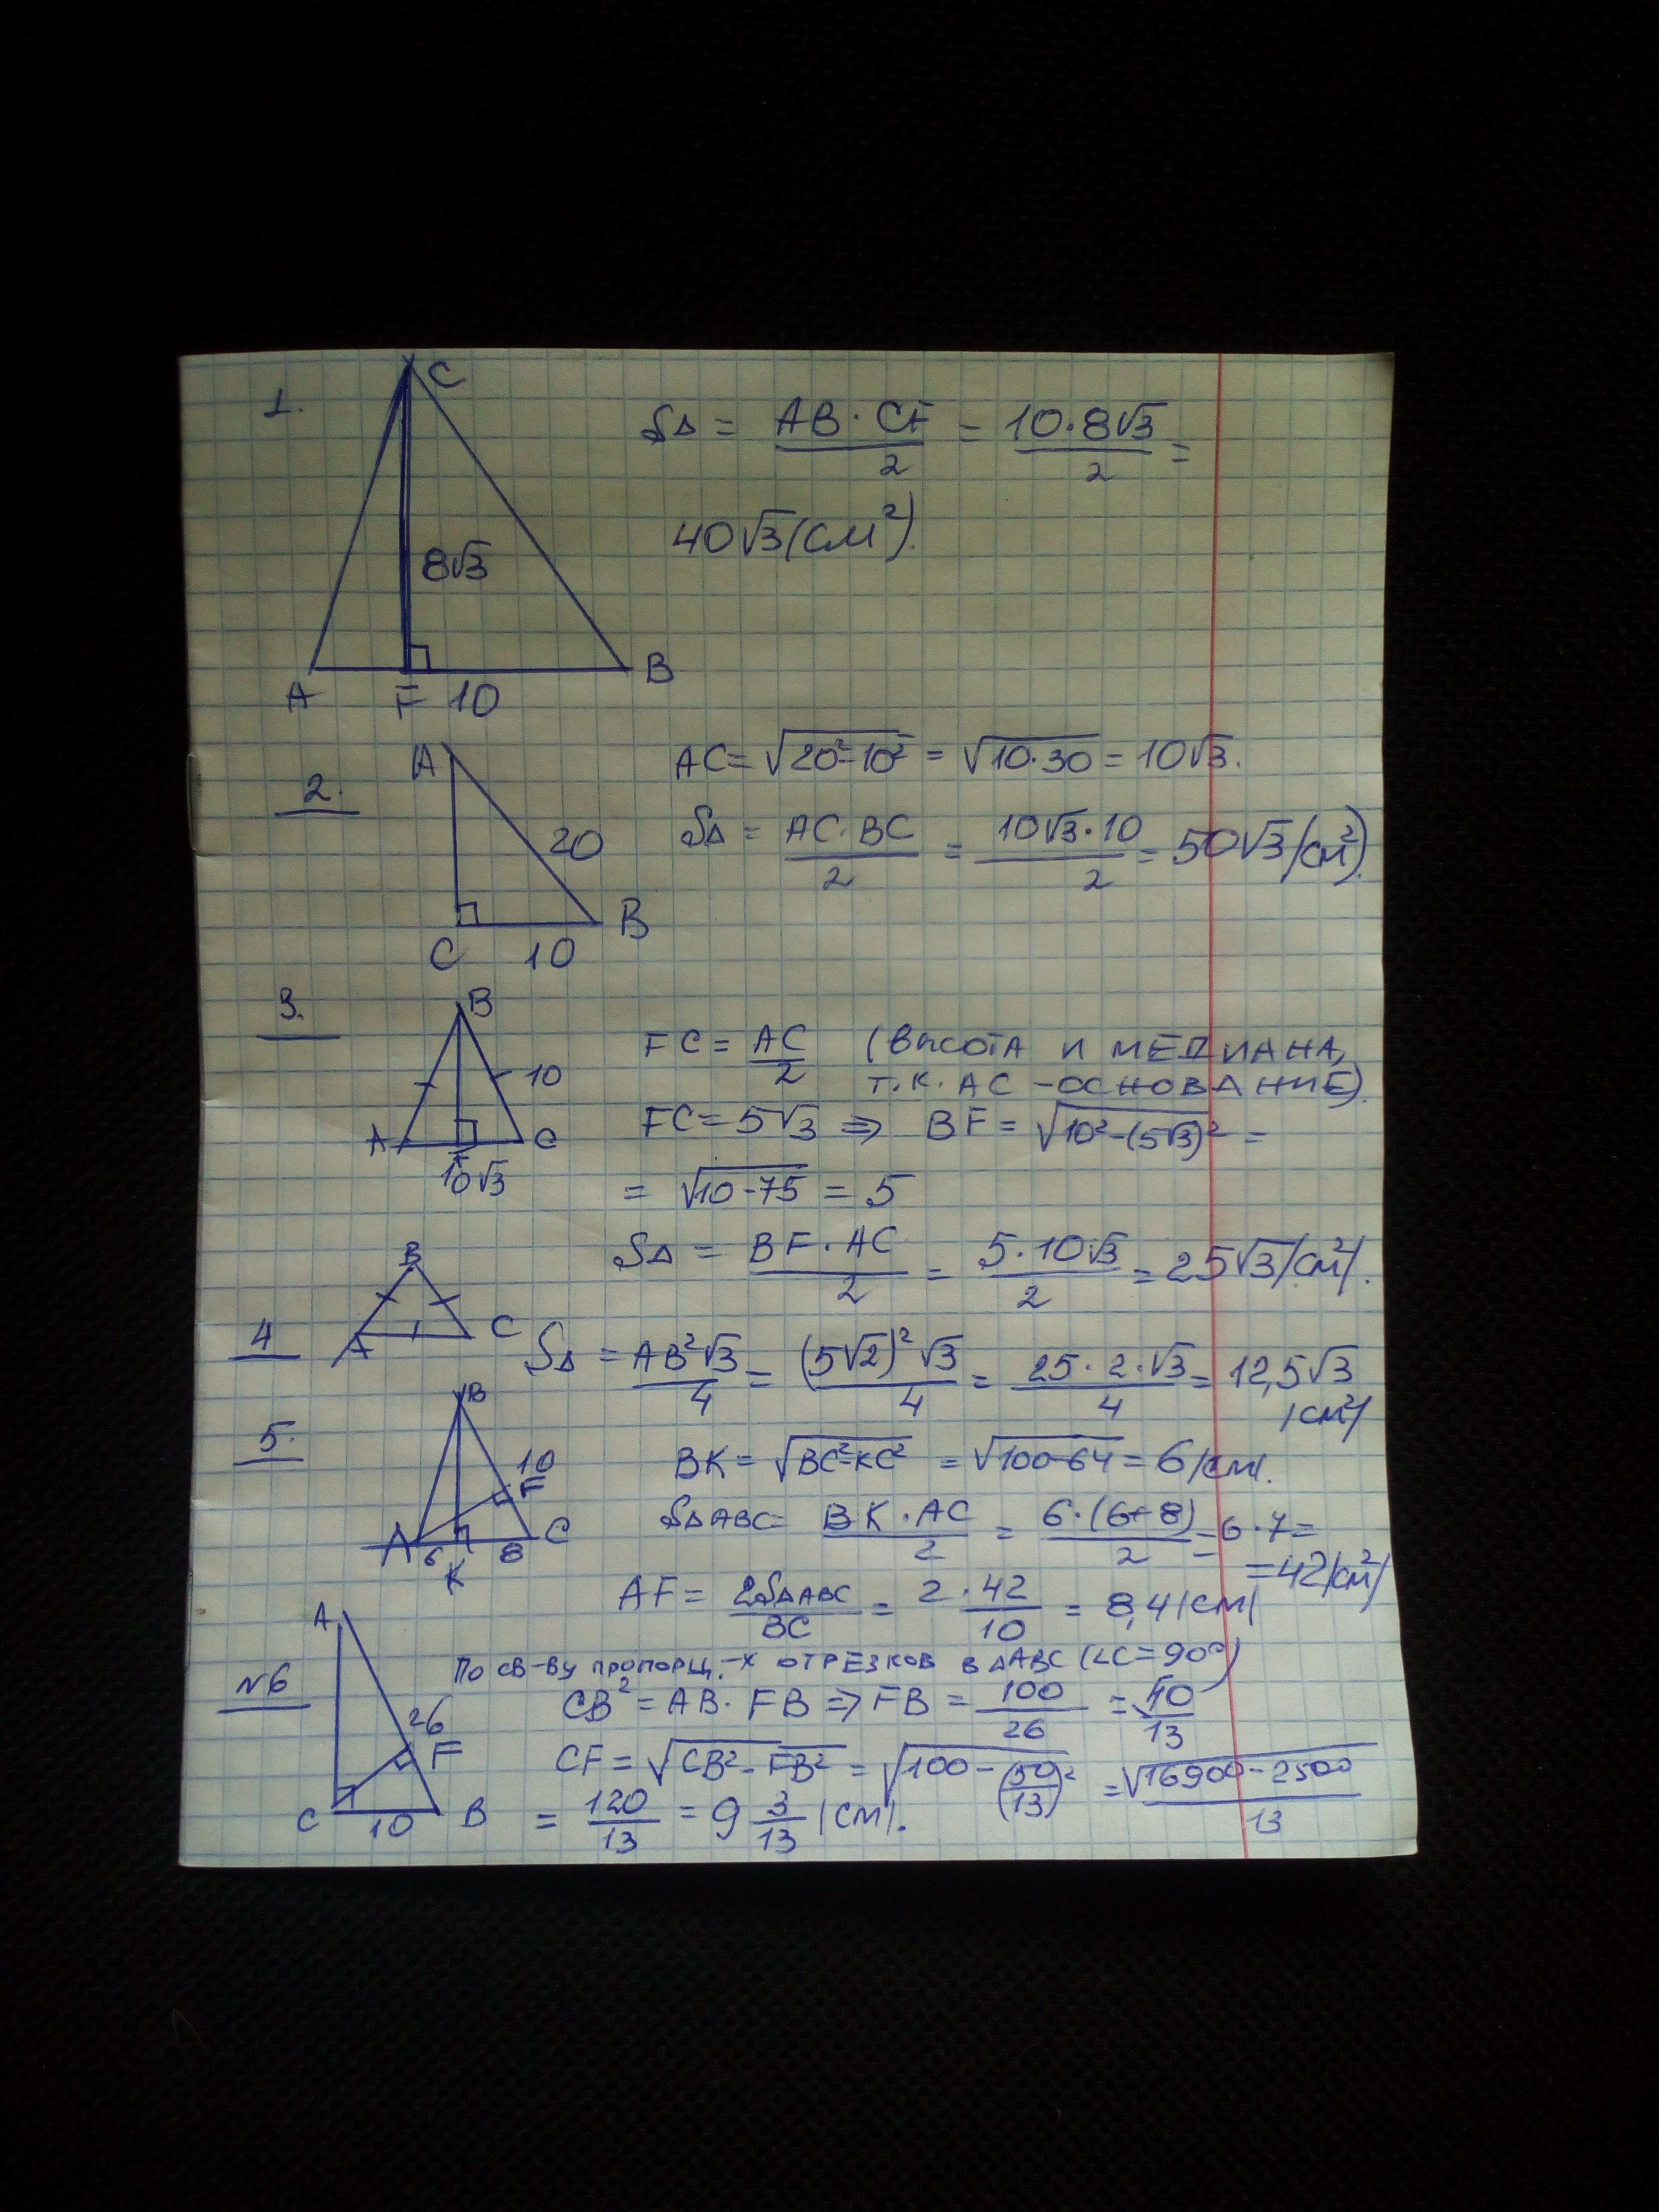 1.
C
8√3
A F 10 B
S∆ = AB · CF / 2 = 10·8√3 / 2 =
40√3 (см²).
2.
A
20
C 10 B
AC = √20²-10² = √10·30 = 10√3.
S∆ = AC·BC / 2 = 10√3·10 / 2 = 50√3 (см²).
3.
B
10
A F C
10√3
FC = AC / 2 (высота и медиана,
т.к. AC - основание)
FC = 5√3 ⇒ BF = √10²-(5√3)² =
= √10-75 = 5
S∆ = BF·AC / 2 = 5·10√3 / 2 = 25√3 (см²).
4
B
A C
S∆ = AB²√3 / 4 = (5√2)²√3 / 4 = 25·2·√3 / 4 = 12,5√3
(см²)
5.
B
10
F
A 6 K 8 C
BK = √BC²-KC² = √100-64 = 6 (см).
S∆ABC = BK·AC / 2 = 6·(6+8) / 2 = 6·7 =
= 42 (см²)
AF = 2S∆ABC / BC = 2·42 / 10 = 8,4 (см)
N6
A
26
F
C 10 B
По св-ву пропорц.-х отрезков в ∆ABC (∠C = 90°)
CB² = AB·FB ⇒ FB = 100 / 26 = 50 / 13
CF = √CB²-FB² = √100-(50/13)² = √16900-2500 / 13
= 120 / 13 = 9 3/13 (см).